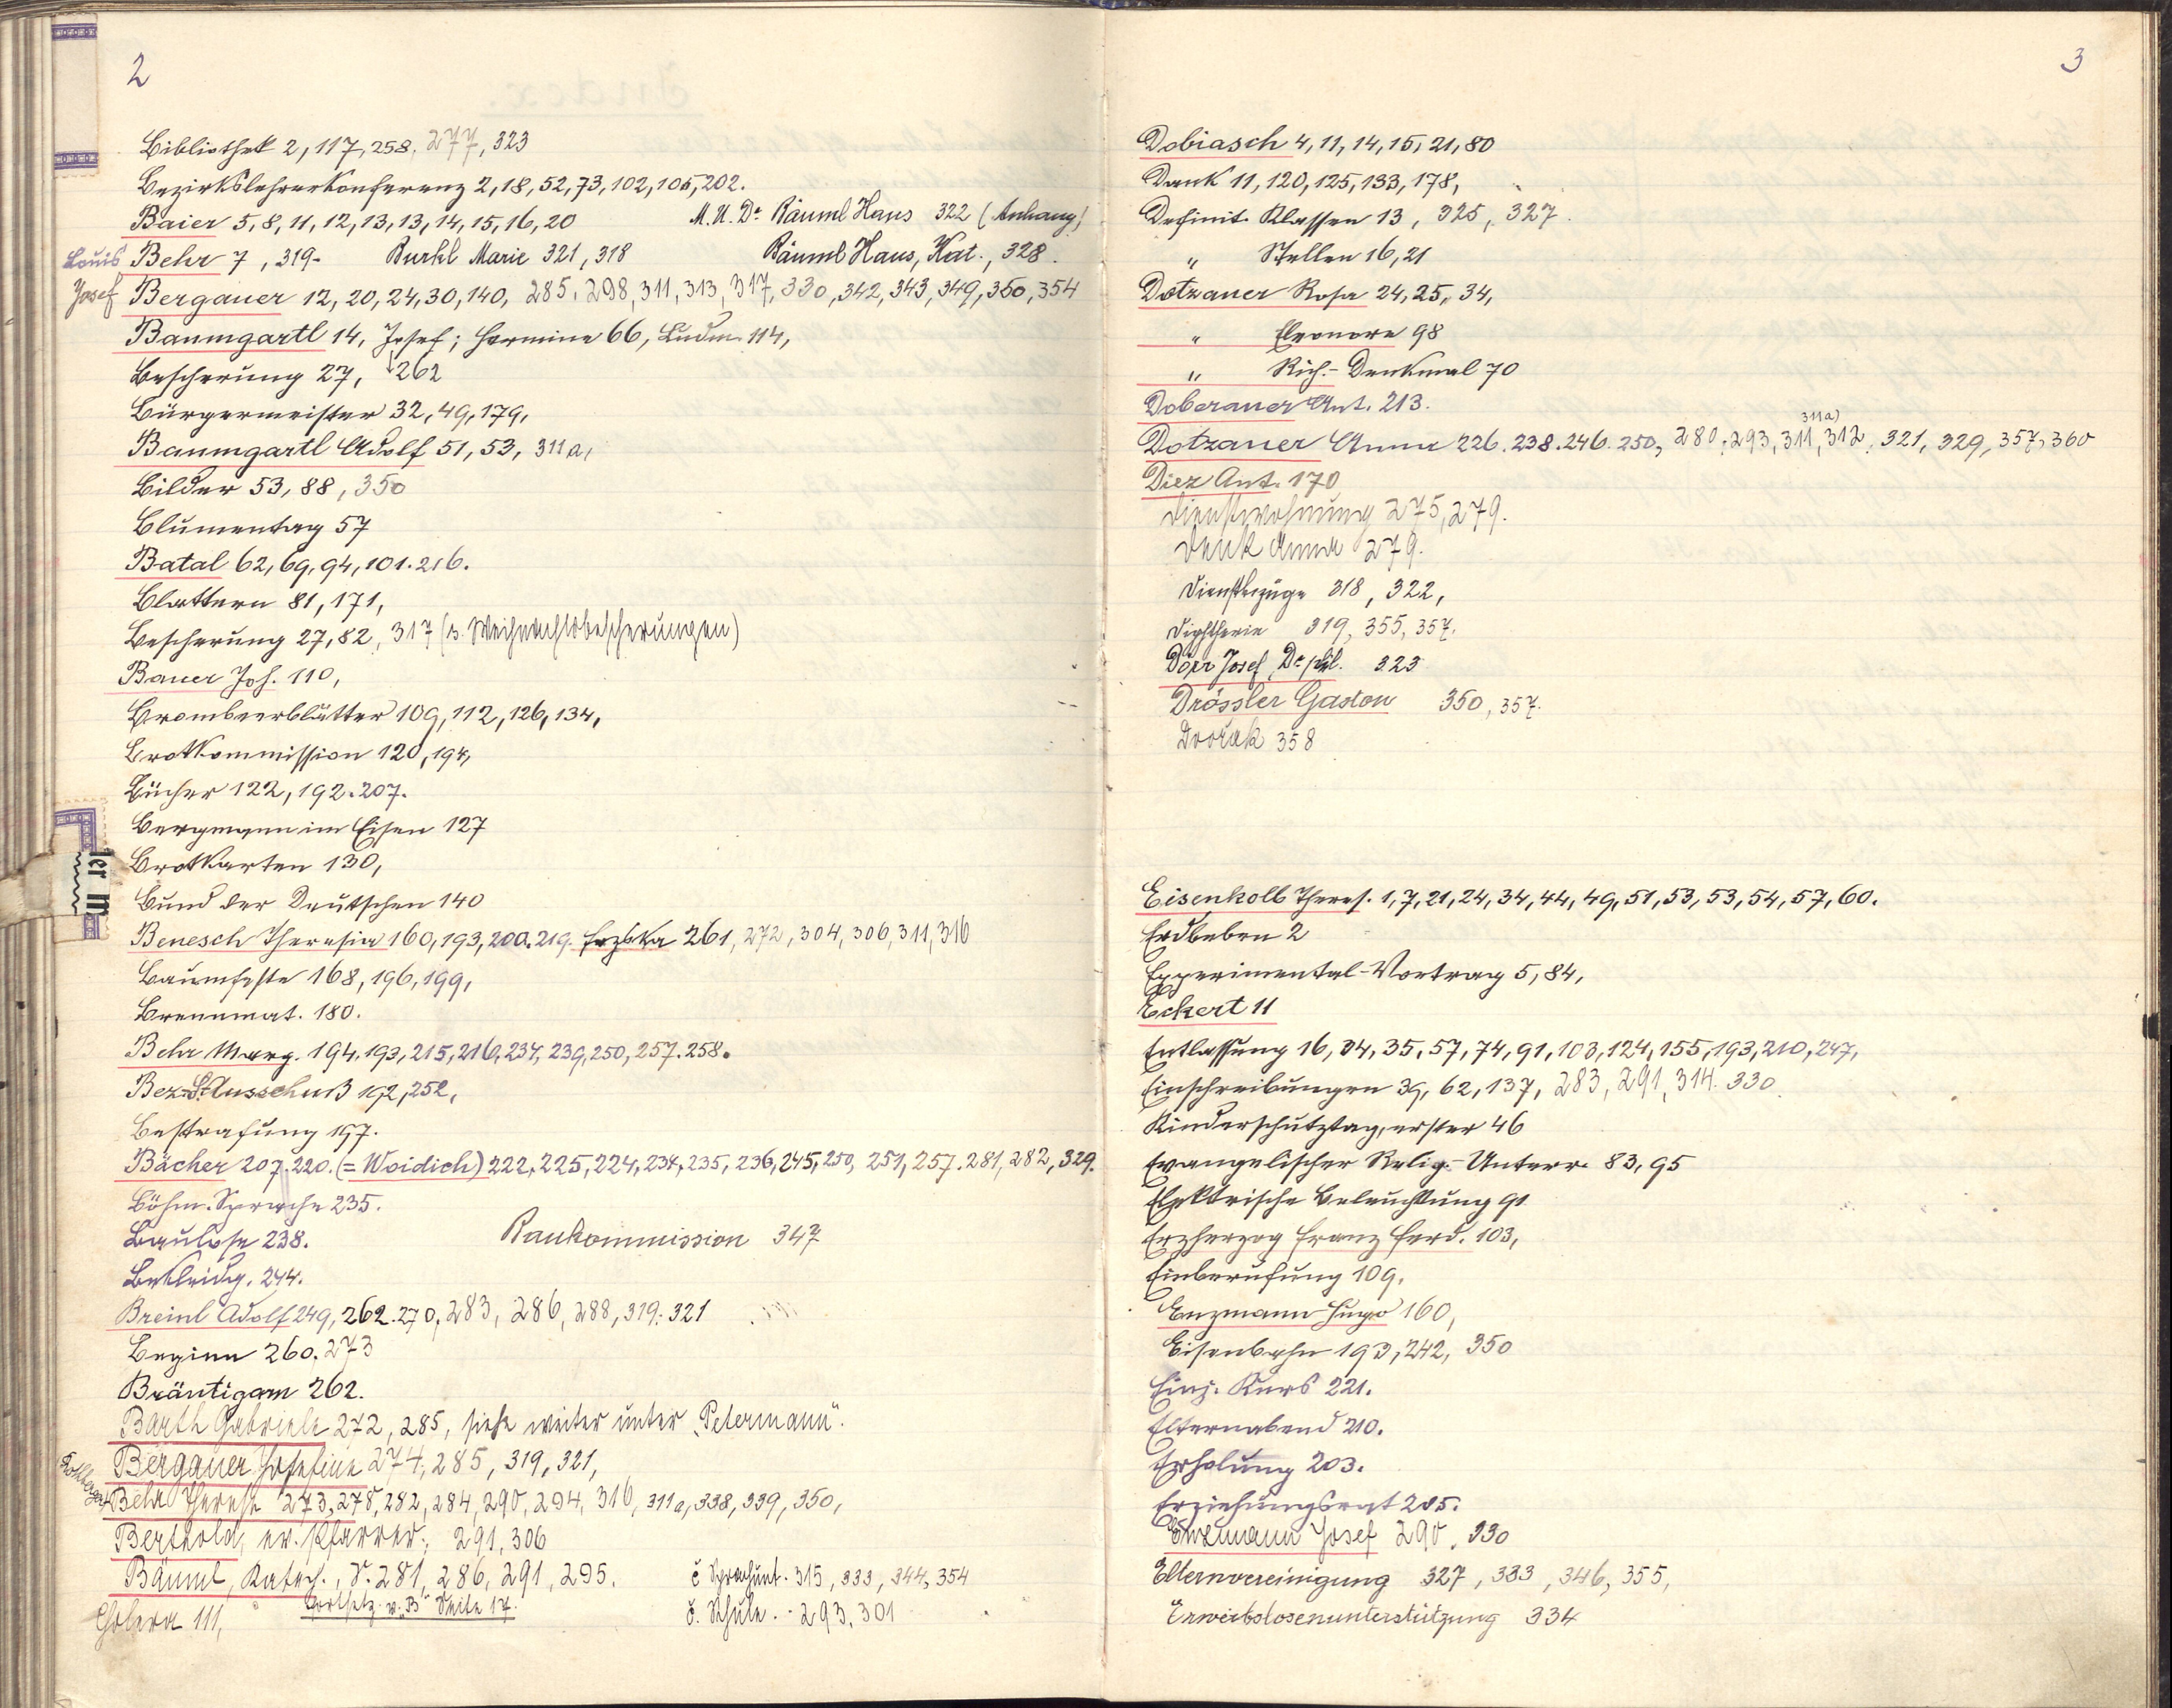 2
Bibliothek 2, 117, 258, 277, 323
Bezirkslehrerkonferenz 2, 18, 52, 73, 102, 105, 202.
Baier 5, 8, 11, 12, 13, 13, 14, 15, 16, 20 M. U. Dr. Bäuml Hans 322 (Anhang)
Louis Behr 7, 319- Burkl Marie 321, 318 Bäuml Hans, Kat., 328.
Josef Bergauer 12, 20, 24, 30, 140, 285, 298, 311, 313, 317, 330, 342, 343, 349, 350, 354
Baumgartl 14, Josef; Hermine 66, Ludm. 114,
Bescherung 27, 262
Bürgermeister 32, 49, 179,
Baumgartl Adolf 51, 53, 311a,
Bilder 53, 88, 350
Blumentag 57
Batal 62, 69, 94, 101. 216.
Blattern 81, 171,
Bescherung 27, 82, 317 (s. Weihnachtsbescherungen)
Bauer Joh. 110,
Brombeerblätter 109, 112, 126, 134,
Brotkommission 120, 194,
Bücher 122, 192. 207.
Bergmann im Eisen 127
Brotkarten 130,
Bund der Deutschen 140
Benesch Theresia 160, 193, 200. 219. Frzska 261, 272, 304, 306, 311, 316
Baumfeste 168, 196, 199,
Brennmat. 180.
Behr Marg. 194, 193, 215, 216, 234, 239, 250, 257. 258.
Bez. St. Ausschuß 192, 252,
Bestrafung 197.
Bächer 207. 220. (= Woidich) 222, 225, 224, 234, 235, 236, 245, 250, 251, 257. 281, 282, 329.
Böhm. Sprache 235.
Baulose 238. Baukommission 347
Bekleidg. 244.
Breinl Adolf 249, 262. 270, 283, 286, 288, 319. 321
Beginn 260. 273
Bräutigam 262.
Barth Gabriele 272, 285, siehe weiter unter "Petermann".
Bergauer Josefine 274, 285, 319, 321,
Behr Therese 273, 278, 282, 284, 290, 294, 316, 311a, 338, 339, 350,
Berthold, ev. Pfarrer, 291, 306
Bäuml, Katech., S. 281, 286, 291, 295. č Sprachunt. 315, 333, 344, 354
Fortsetz. v. "B" Seite 17. č. Schule. - 293, 301
Cholera 111,
3
Dobiasch 4, 11, 14, 15, 21, 80
Dank 11, 120, 125, 133, 178,
Definit. Klassen 13, 325, 327.
" Stellen 16, 21
Dotzauer Rosa 24, 25, 34,
" Eleonore 98
" Rich.- Denkmal 70
Doberauer Ant. 213.
311a)
Dotzauer Anna 226. 238. 246. 250, 280, 293, 311, 312, 321, 329, 357, 360
Diez Ant. 170
Dienstwohnung 275, 279.
Denk Anna 279.
Dienstbezüge 318, 322,
Diphtherie 319, 355, 357.
Dörr Josef, Dr. phil. 323
Drössler Gaston 350, 357.
Dvořak 358
Eisenkolb Theres. 1, 7, 21, 24, 34, 44, 49, 51, 53, 53, 54, 57, 60.
Erdbeben 2
Experimental-Vortrag 5, 84,
Eckert 11
Entlassung 16, 24, 35, 57, 74, 91, 103, 124, 155, 193, 210, 247,
Einschreibungen 39, 62, 137, 283, 291, 314. 330
Kinderschutztag, erster 46
Evangelischer Relig.- Unterr. 83, 95
Elektrische Beleuchtung 91
Erzherzog Franz Ferd. 103,
Einberufung 109,
Enzmann Hugo 160,
Eisenbahn 193, 242, 350
Einj. Kurs 221.
Elternabend 210.
Erholung 203.
Erziehungsrat 205.
Enzmann Josef 290, 330
Elternvereinigung 327, 333, 346, 355,
Erwerbslosenunterstützung 334